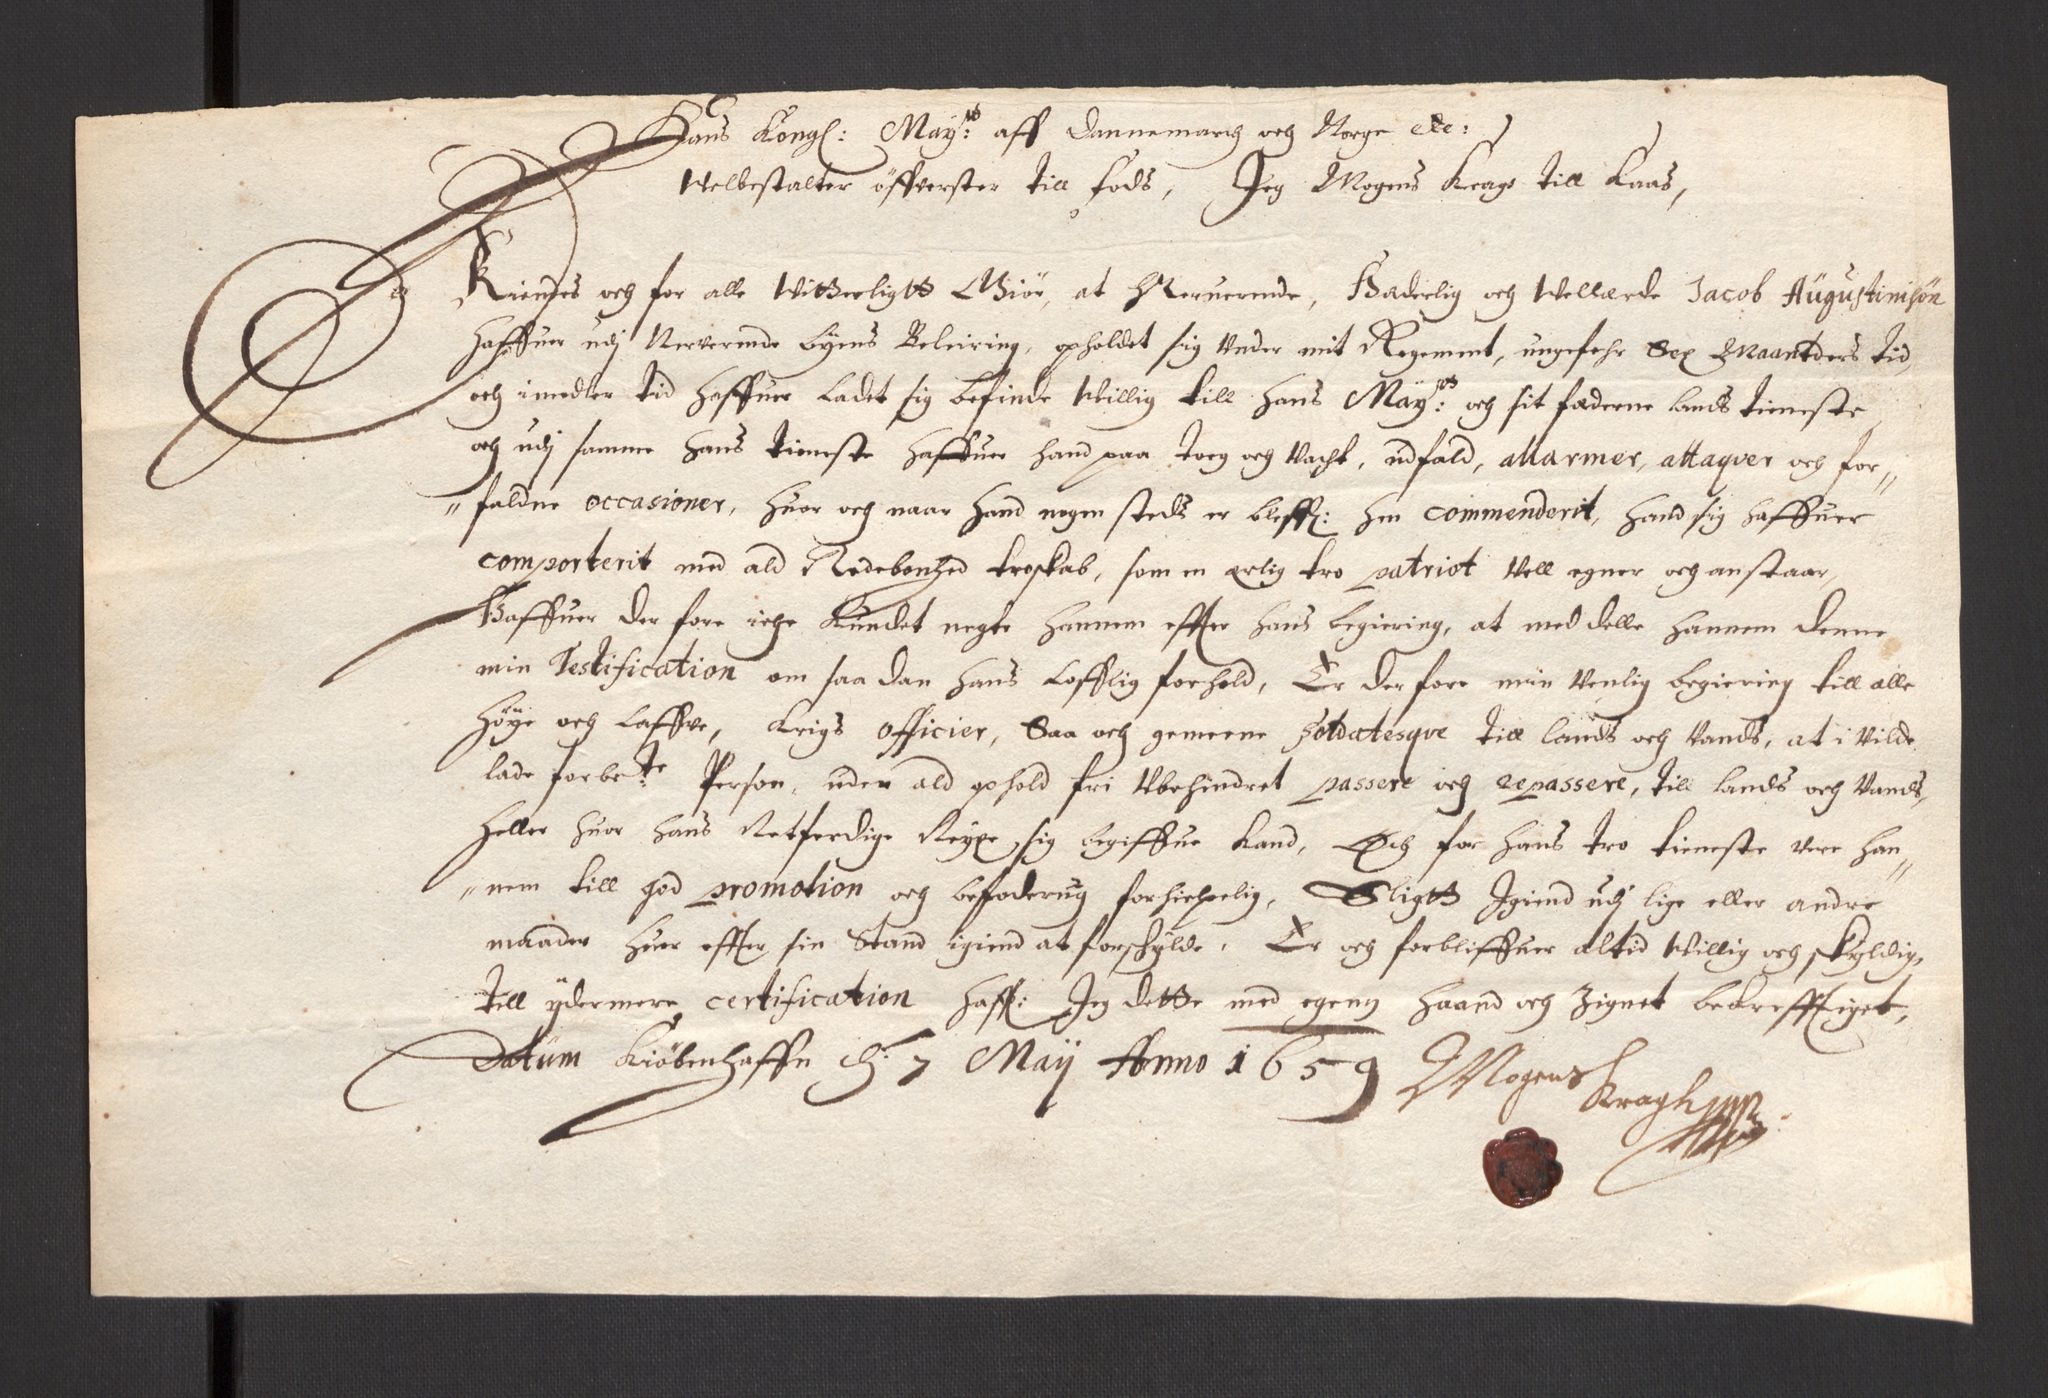 Hans Kongl: May:ts aff Dannemarch och Norge etc:
Welbestalter öffverster till fods, Jeg Mogens Krag till Kaas,
Kiendes och for alle Witterligtt Giör, at Neruerinde, Hæderlig och Wellærde Jacob Augustinisön
haffuer udj Nerverinde byens Beleiring, opholdet sig Under mit Regement, ungefehr Sex Maanders tid,
och imedler tid haffuer Ladet sig befinde Willig till hans May:tts och sit fæderne lands tieneste,
och udj samme hans tieneste haffuer hand paa torg och Vacht, udfald, allarmer, attaqver och for⹀
⹀faldne occasioner, huor och naar hand nogen steds er bleff: hen commenderit, hand sig haffuer
comporterit med ald Redebonhed troskab, som en ærlig tro patriot Vell egner och anstaar,
Haffuer derfore icke Kundet negte hannem effter hans begiering, at meddelle hannem denne
min Testification om saadan hans Lofflig forhold, Er derfore min Venlig begiering till alle
Høye och Laffve, Krigs officier, Saa och gemeene Soldatesqve till lands och Vands, at i Vilde
lade forbe:te Person, uden ald ophold fri Ubehindret passere och repassere, till lands och Vands,
heller huor hans Retferdige Reyse sig begiffue Kand, Och for hans tro tieneste vere han⹀
⹀nem till god promotion och befoderug forhielpelig, Sligtt Igiend udj lige eller andre
maader huer effter sin Stand igiend at forskylde, Er och forbliffuer altid Willig och skyldig,
till ydermere certification haff: Jeg dette med egenn haand och Zignet bekrefftiget,
Datum Kiöbenhaffn d: 7 May Anno 1659
Mogens
Kragh